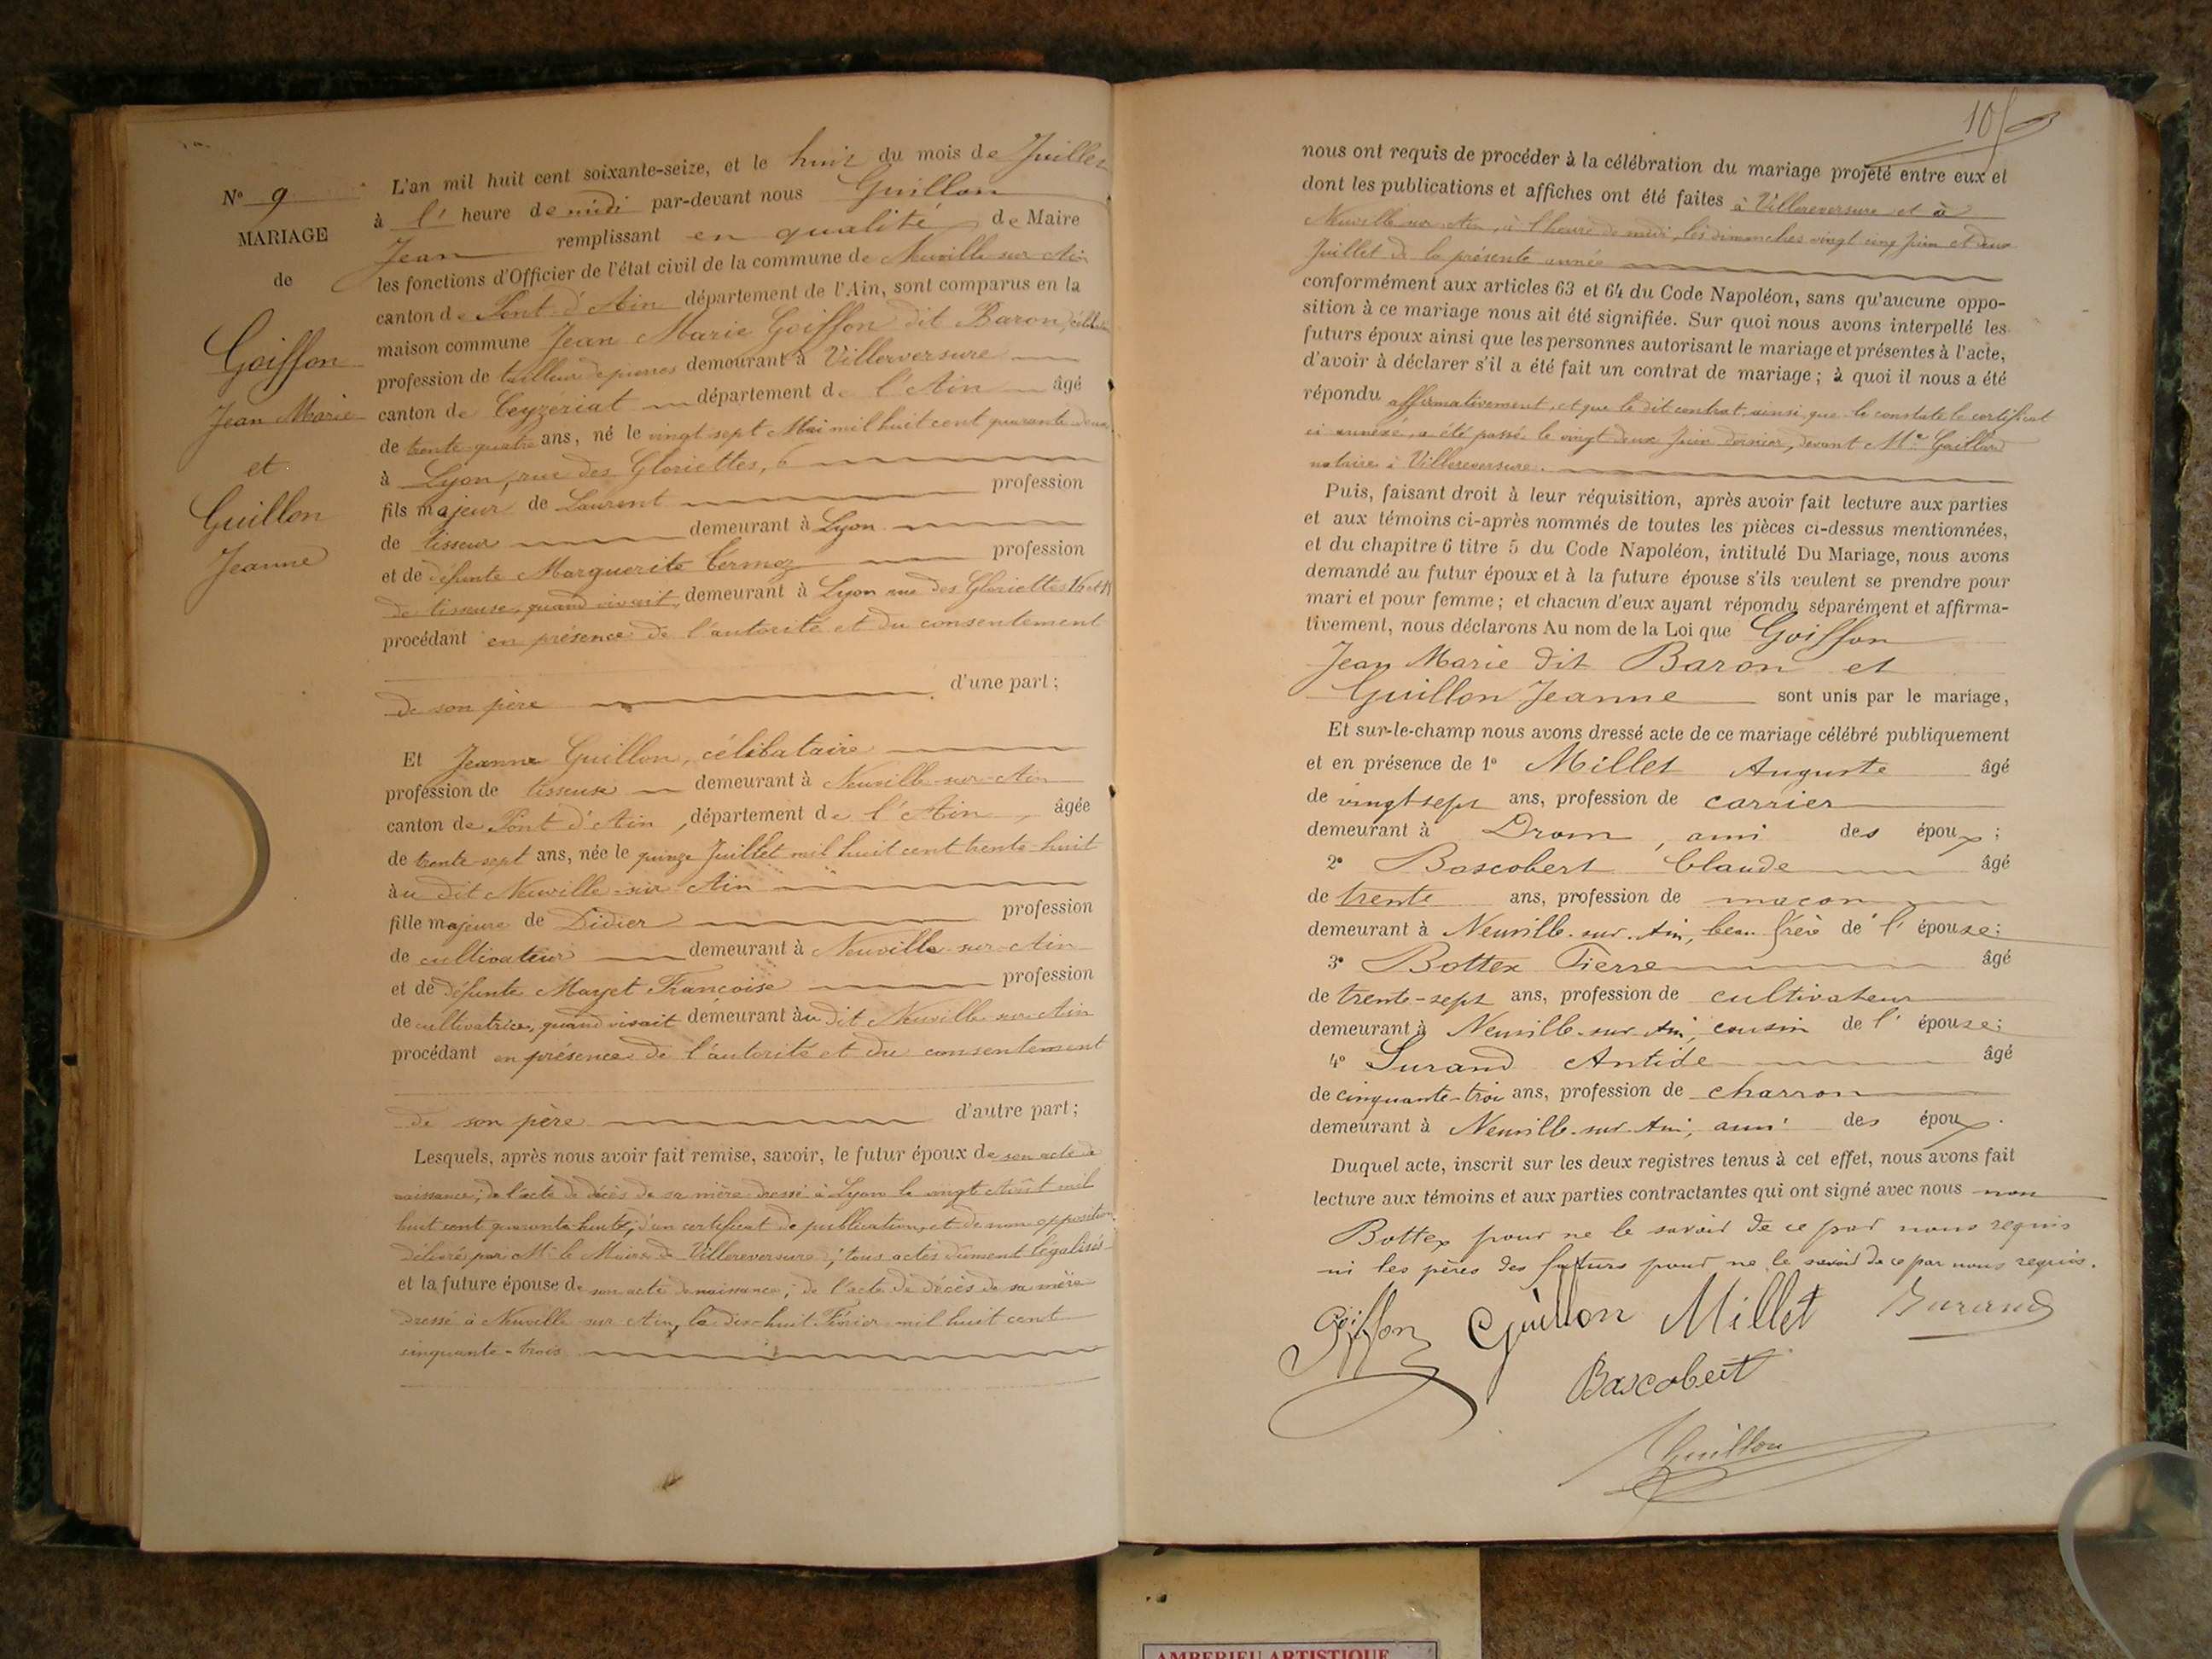 N° 9
MARIAGE
de
Goiffon
Jean Marie
et
Guillon
Jeanne
L'an mil huit cent soixante-seize, et le huit du mois de Juillet
à l' heure de midi par-devant nous Guillon
Jean remplissant en qualité de Maire
les fonctions d'Officier de l'état civil de la commune de Neuville sur Ain
canton de Pont d'Ain département de l'Ain, sont comparus en la
maison commune Jean Marie Goiffon dit Baron, célibataire
profession de tailleur de pierres demeurant à Villereversure
canton de Ceyzériat département de l'Ain âgé
de trente quatre ans, né le vingt sept Mai mil huit cent quarante deux
à Lyon, rue des Gloriettes, 6
fils majeur de Laurent profession
de tisseur demeurant à Lyon
et de défunte Marguerite Termoz profession
de tisseuse, quand vivait, demeurant à Lyon rue des Gloriettes 16
procédant en présence de l'autorité et du consentement
de son père d'une part;
Et Jeanne Guillon, célibataire
profession de tisseuse demeurant à Neuville-sur-Ain
canton de Pont d'Ain, département de l'Ain, âgée
de trente-sept ans, née le quinze Juillet mil huit cent trente-huit
au dit Neuville-sur-Ain
fille majeure de Didier profession
de cultivateur demeurant à Neuville-sur-Ain
et de défunte Marjet Françoise profession
de cultivatrice, quand vivait demeurant au dit Neuville sur Ain
procédant en présence de l'autorité et du consentement
de son père d'autre part;
Lesquels, après nous avoir fait remise, savoir, le futur époux de son acte de
naissance; de l'acte de décès de sa mère dressé à Lyon le vingt Août mil
huit cent quarante-huit; d'un certificat de publication et de non opposition
délivré par Mr le Maire de Villereversure; tous actes dûment légalisés
et la future épouse de son acte de naissance; de l'acte de décès de sa mère
dressé à Neuville sur Ain, le dix-huit Février mil huit cent
cinquante-trois
105
nous ont requis de procéder à la célébration du mariage projeté entre eux et
dont les publications et affiches ont été faites à Villereversure et à
Neuville sur Ain, à l'heure de midi, les dimanches vingt cinq Juin et deux
Juillet de la présente année
conformément aux articles 63 et 64 du Code Napoléon, sans qu'aucune oppo-
sition à ce mariage nous ait été signifiée. Sur quoi nous avons interpellé les
futurs époux ainsi que les personnes autorisant le mariage et présentes à l'acte,
d'avoir à déclarer s'il a été fait un contrat de mariage; à quoi il nous a été
répondu affirmativement, et que le dit contrat, ainsi que le constate le certificat
ci annexé, a été passé le vingt deux Juin dernier, devant Me Gaillard
notaire à Villereversure.
Puis, faisant droit à leur réquisition, après avoir fait lecture aux parties
et aux témoins ci-après nommés de toutes les pièces ci-dessus mentionnées,
et du chapitre 6 titre 5 du Code Napoléon, intitulé Du Mariage, nous avons
demandé au futur époux et à la future épouse s'ils veulent se prendre pour
mari et pour femme; et chacun d'eux ayant répondu séparément et affirma-
tivement, nous déclarons Au nom de la Loi que Goiffon
Jean Marie dit Baron et
Guillon Jeanne sont unis par le mariage,
Et sur-le-champ nous avons dressé acte de ce mariage célébré publiquement
et en présence de 1° Millet Auguste âgé
de vingt sept ans, profession de carrier
demeurant à Drom, ami des époux;
2° Bascobert Claude âgé
de trente ans, profession de maçon
demeurant à Neuville-sur-Ain, beau frère de l'épouse;
3° Bottex Pierre âgé
de trente-sept ans, profession de cultivateur
demeurant à Neuville-sur-Ain, cousin de l'épouse;
4° Durand Antide âgé
de cinquante-trois ans, profession de charron
demeurant à Neuville-sur-Ain, ami des époux.
Duquel acte, inscrit sur les deux registres tenus à cet effet, nous avons fait
lecture aux témoins et aux parties contractantes qui ont signé avec nous non
Bottex pour ne le savoir de ce par nous requis
ni les pères des futurs pour ne le savoir de ce par nous requis.
Goiffon Guillon Millet Durand
Bascobert
Guillon
AMBERIEU ARTISTIQUE